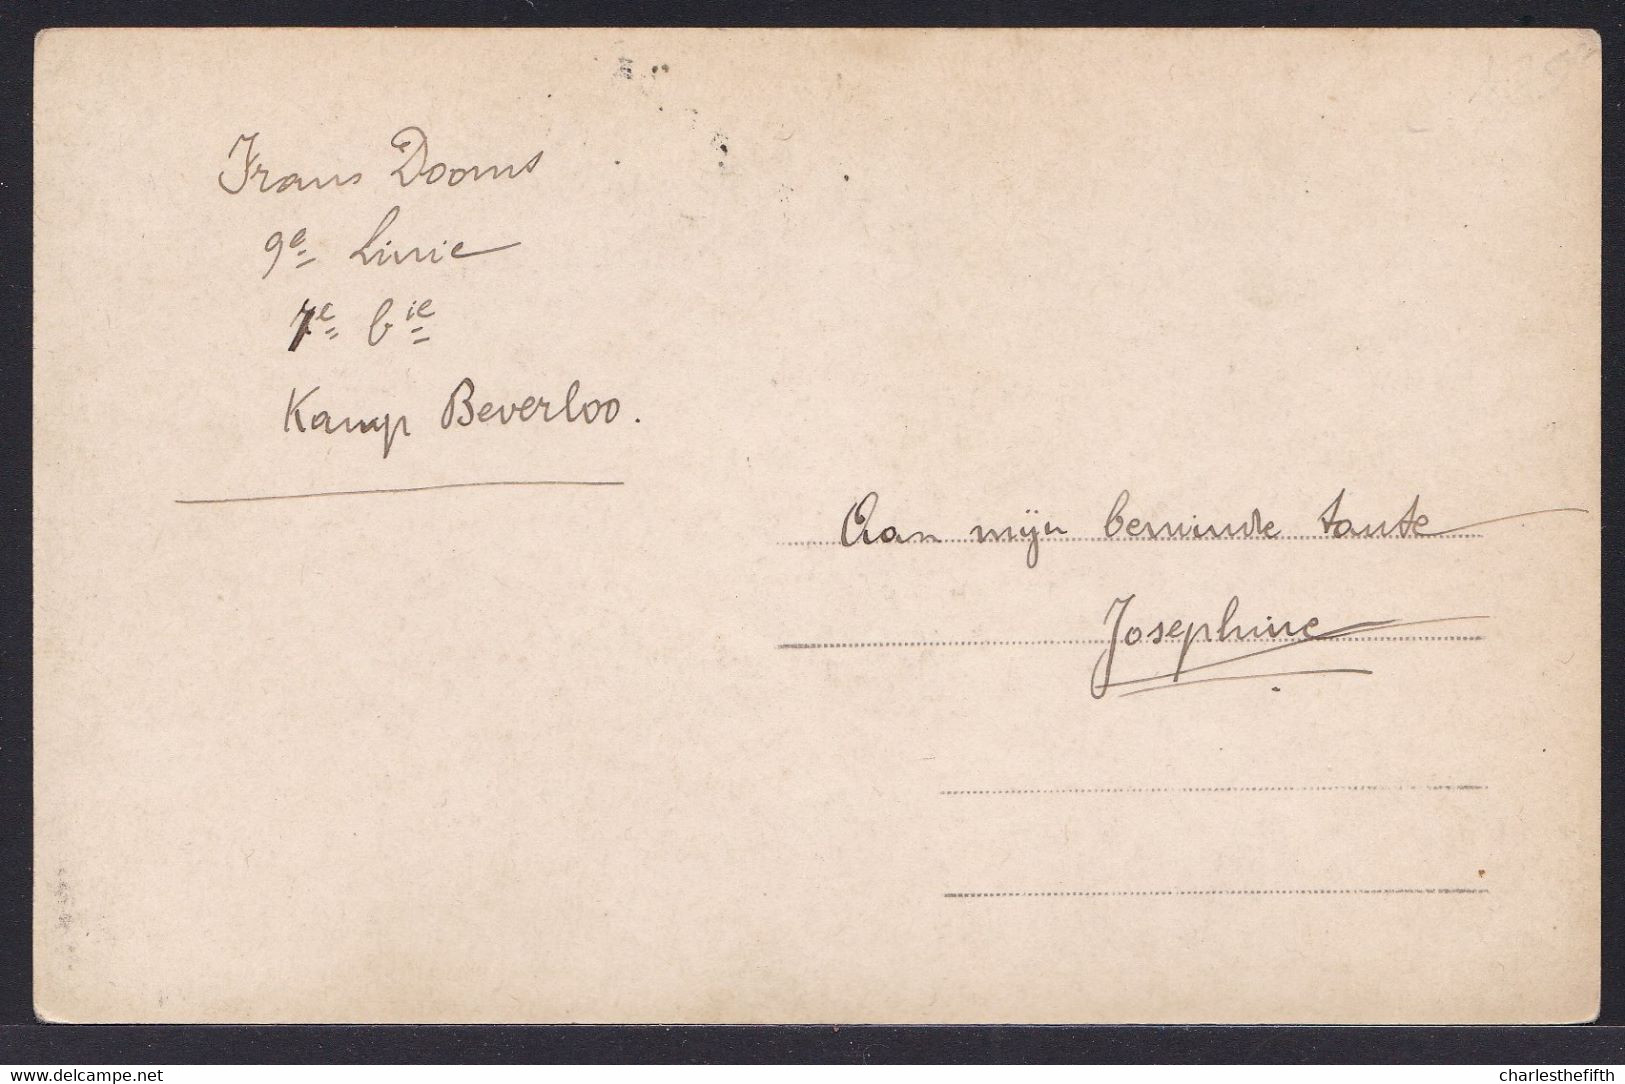 Frans Dooms
9e Linie
7e Cie
Kamp Beverloo.
Aan mijn beminde tante
Josephine
www.delcampe.net
charlesthefifth